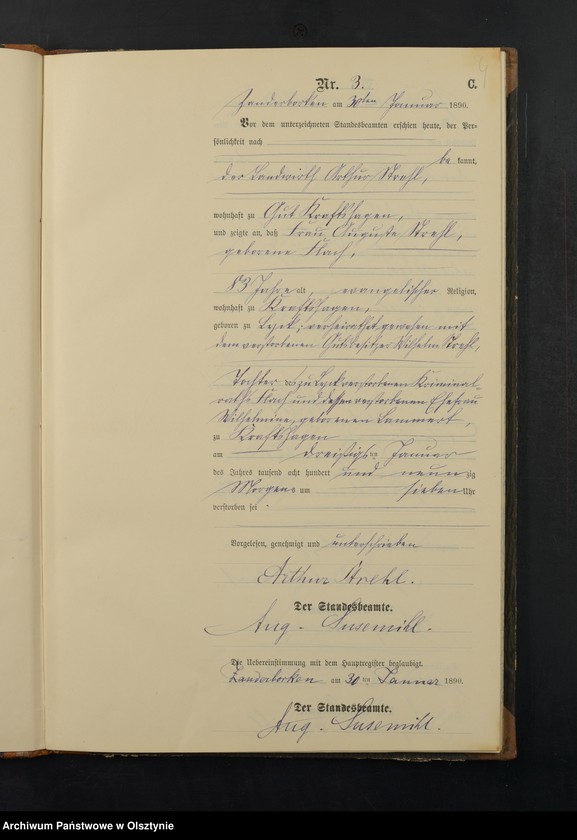 Nr. 3. C.
Zanderborken am 30ten Januar 1890.
Vor dem unterzeichneten Standesbeamten erschien heute, der Per-
sönlichkeit nach
be kannt,
der Landwirth Arthur Strehl,
wohnhaft zu Gut Kraftshagen,
und zeigte an, daß Frau Auguste Strehl,
geborene Flach,
83 Jahre alt, evangelischer Religion,
wohnhaft zu Kraftshagen,
geboren zu Lyck, verheirathet gewesen mit
dem verstorbenen Gutsbesitzer Wilhelm Strehl,
Tochter des zu Lyck verstorbenen Kriminal-
raths Flach und dessen verstorbenen Ehefrau
Wilhelmine, geborenen Lammert,
zu Kraftshagen
am dreißigsten Januar
des Jahres tausend acht hundert und neunzig
Morgens um sieben Uhr
verstorben sei
Vorgelesen, genehmigt und unterschrieben
Arthur Strehl.
Der Standesbeamte.
Aug. Susemihl.
Die Uebereinstimmung mit dem Hauptregister beglaubigt.
Zanderborken am 30ten Januar 1890.
Der Standesbeamte.
Aug. Susemihl.
Archiwum Państwowe w Olsztynie